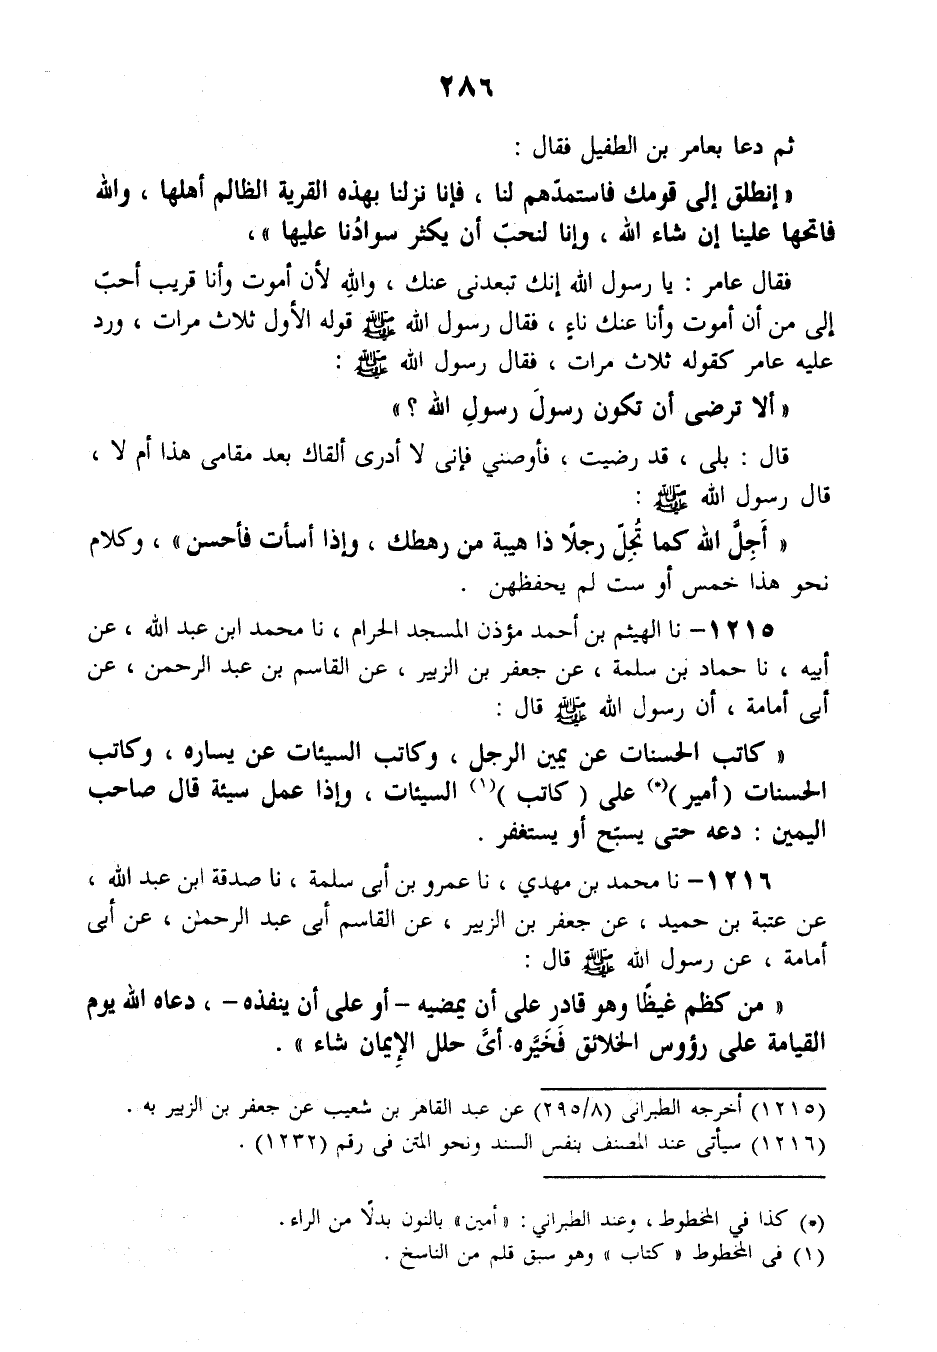 ٢٨٦
ثم دعا بعامر بن الطفيل فقال :
« إنطلق إلى قومك فاستمدّهم لنا ، فإنا نزلنا بهذه القرية الظالم أهلها ، والله
فاتحها علينا إن شاء الله ، وإنا لنحبّ أن يكثر سوادُنا عليها » ،
فقال عامر : يا رسول الله إنك تبعدنى عنك ، واللهِ لأن أموت وأنا قريب أحبّ
إلى من أن أموت وأنا عنك ناءٍ ، فقال رسول الله ﷺ قوله الأول ثلاث مرات ، ورد
عليه عامر كقوله ثلاث مرات ، فقال رسول الله ﷺ :
« ألا ترضى أن تكون رسولَ رسولِ الله ؟ »
قال : بلى ، قد رضيت ، فأوصني فإنى لا أدرى ألقاك بعد مقامى هذا أم لا ،
قال رسول الله ﷺ :
« أَجِلَّ الله كما تُجِلّ رجلًا ذا هيبة من رهطك ، وإذا أسأت فأحسن » ، وكلام
نحو هذا خمس أو ست لم يحفظهن .
١٢١٥– نا الهيثم بن أحمد مؤذن المسجد الحرام ، نا محمد ابن عبد الله ، عن
أبيه ، نا حماد بن سلمة ، عن جعفر بن الزبير ، عن القاسم بن عبد الرحمن ، عن
أبى أمامة ، أن رسول الله ﷺ قال :
« كاتب الحسنات عن يمين الرجل ، وكاتب السيئات عن يساره ، وكاتب
الحسنات (أمير)(*) على ( كاتب )(١) السيئات ، وإذا عمل سيئة قال صاحب
اليمين : دعه حتى يسبّح أو يستغفر .
١٢١٦– نا محمد بن مهدي ، نا عمرو بن أبى سلمة ، نا صدقة ابن عبد الله ،
عن عتبة بن حميد ، عن جعفر بن الزبير ، عن القاسم أبى عبد الرحمٰن ، عن أبى
أمامة ، عن رسول الله ﷺ قال :
« من كظم غيظًا وهو قادر على أن يمضيه – أو على أن ينفذه – ، دعاه الله يوم
القيامة على رؤوس الخلائق فَخَيَّره أىَّ حلل الإِيمان شاء » .
(١٢١٥) أخرجه الطبرانى (٢٩٥/٨) عن عبد القاهر بن شعيب عن جعفر بن الزبير به .
(١٢١٦) سيأتى عند المصنف بنفس السند ونحو المتن فى رقم (١٢٣٢) .
(*) كذا في المخطوط ، وعند الطبراني : «أمين» بالنون بدلًا من الراء .
(١) فى المخطوط « كتاب » وهو سبق قلم من الناسخ .